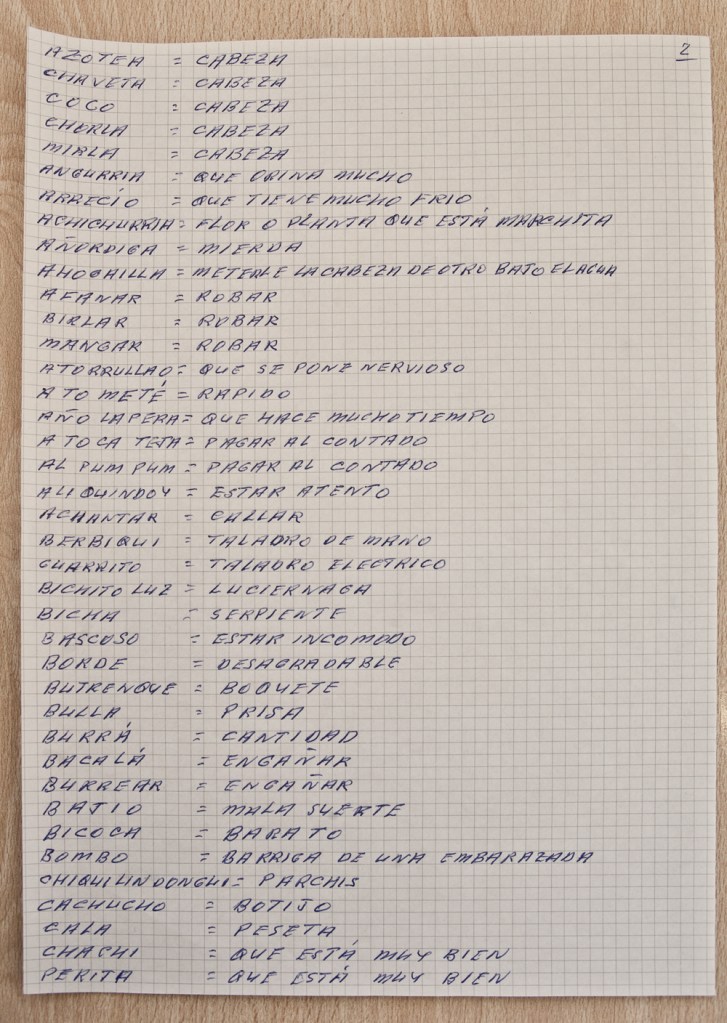 2
AZOTEA = CABEZA
CHAVETA = CABEZA
COCO = CABEZA
CHORLA = CABEZA
MIRLA = CABEZA
ANGURRIA = QUE ORINA MUCHO
ARRECÍO = QUE TIENE MUCHO FRIO
ACHICHURRIA = FLOR O PLANTA QUE ESTÁ MARCHITA
AÑORDIGA = MIERDA
AHOGAILLA = METERLE LA CABEZA DE OTRO BAJO EL AGUA
AFANAR = ROBAR
BIRLAR = ROBAR
MANGAR = ROBAR
ATORRULLAO = QUE SE PONE NERVIOSO
A TO METÉ = RAPIDO
AÑO LA PERA = QUE HACE MUCHO TIEMPO
A TOCA TETA = PAGAR AL CONTADO
AL PUM PUM = PAGAR AL CONTADO
ALIQUINDOY = ESTAR ATENTO
ACHANTAR = CALLAR
BERBIQUI = TALADRO DE MANO
GUARRITO = TALADRO ELECTRICO
BICHITO LUZ = LUCIERNAGA
BICHA = SERPIENTE
BASCOSO = ESTAR INCOMODO
BORDE = DESAGRADABLE
BUTRENQUE = BOQUETE
BULLA = PRISA
BURRÁ = CANTIDAD
BACALÁ = ENGAÑAR
BURREAR = ENGAÑAR
BAJIO = MALA SUERTE
BICOCA = BARATO
BOMBO = BARRIGA DE UNA EMBARAZADA
CHIQUILINDONGUI = PARCHIS
CACHUCHO = BOTIJO
CALA = PESETA
CHACHI = QUE ESTÁ MUY BIEN
PERITA = QUE ESTÁ MUY BIEN